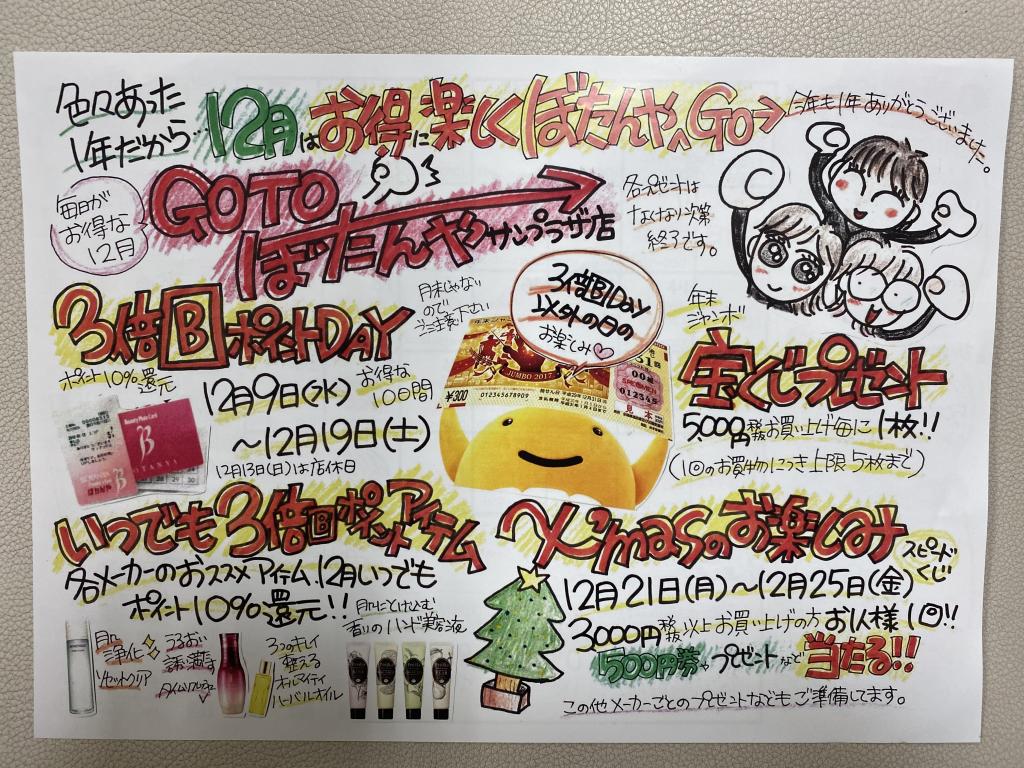 色々あった
1年だから…
12月はお得に楽しくぼたんやへGO→
今年も1年ありがとうございました。
毎日が
お得な
12月
GO TO
ぼたんやサンプラザ店
各プレゼントは
なくなり次第
終了です。
3倍BポイントDAY
ポイント10%還元
月末じゃない
ので
ご注意下さい
12月9日(水)
お得な
10日間
〜12月19日(土)
12月13日(日)は店休日
Beauty Photo Card
B
3倍B!DAY
以外の日の
お楽しみ♡
JUMBO 2017
¥300
012345678909
51組
00組
012345
見本
年末
ジャンボ
宝くじプレゼント
5,000円税抜お買い上げ毎に1枚!!
(1回のお買物につき上限5枚まで)
いつでも3倍Bポイントアイテム
各メーカーのおススメアイテム、12月いつでも
ポイント10%還元!!
肌に
浄化
リセットクリア
うるおい
誘い満ちる
タイムリプレッシュ
3つのキレイ
整える
オルマイティ
ハーバルオイル
肌にとけ込む
香りのハンド美容液
X'masのお楽しみ
スピード
くじ
12月21日(月)〜12月25日(金)
3000円税抜以上お買い上げの方お1人様1回!!
500円券やプレゼントなど当たる!!
この他メーカーごとのプレゼントなどもご準備してます。